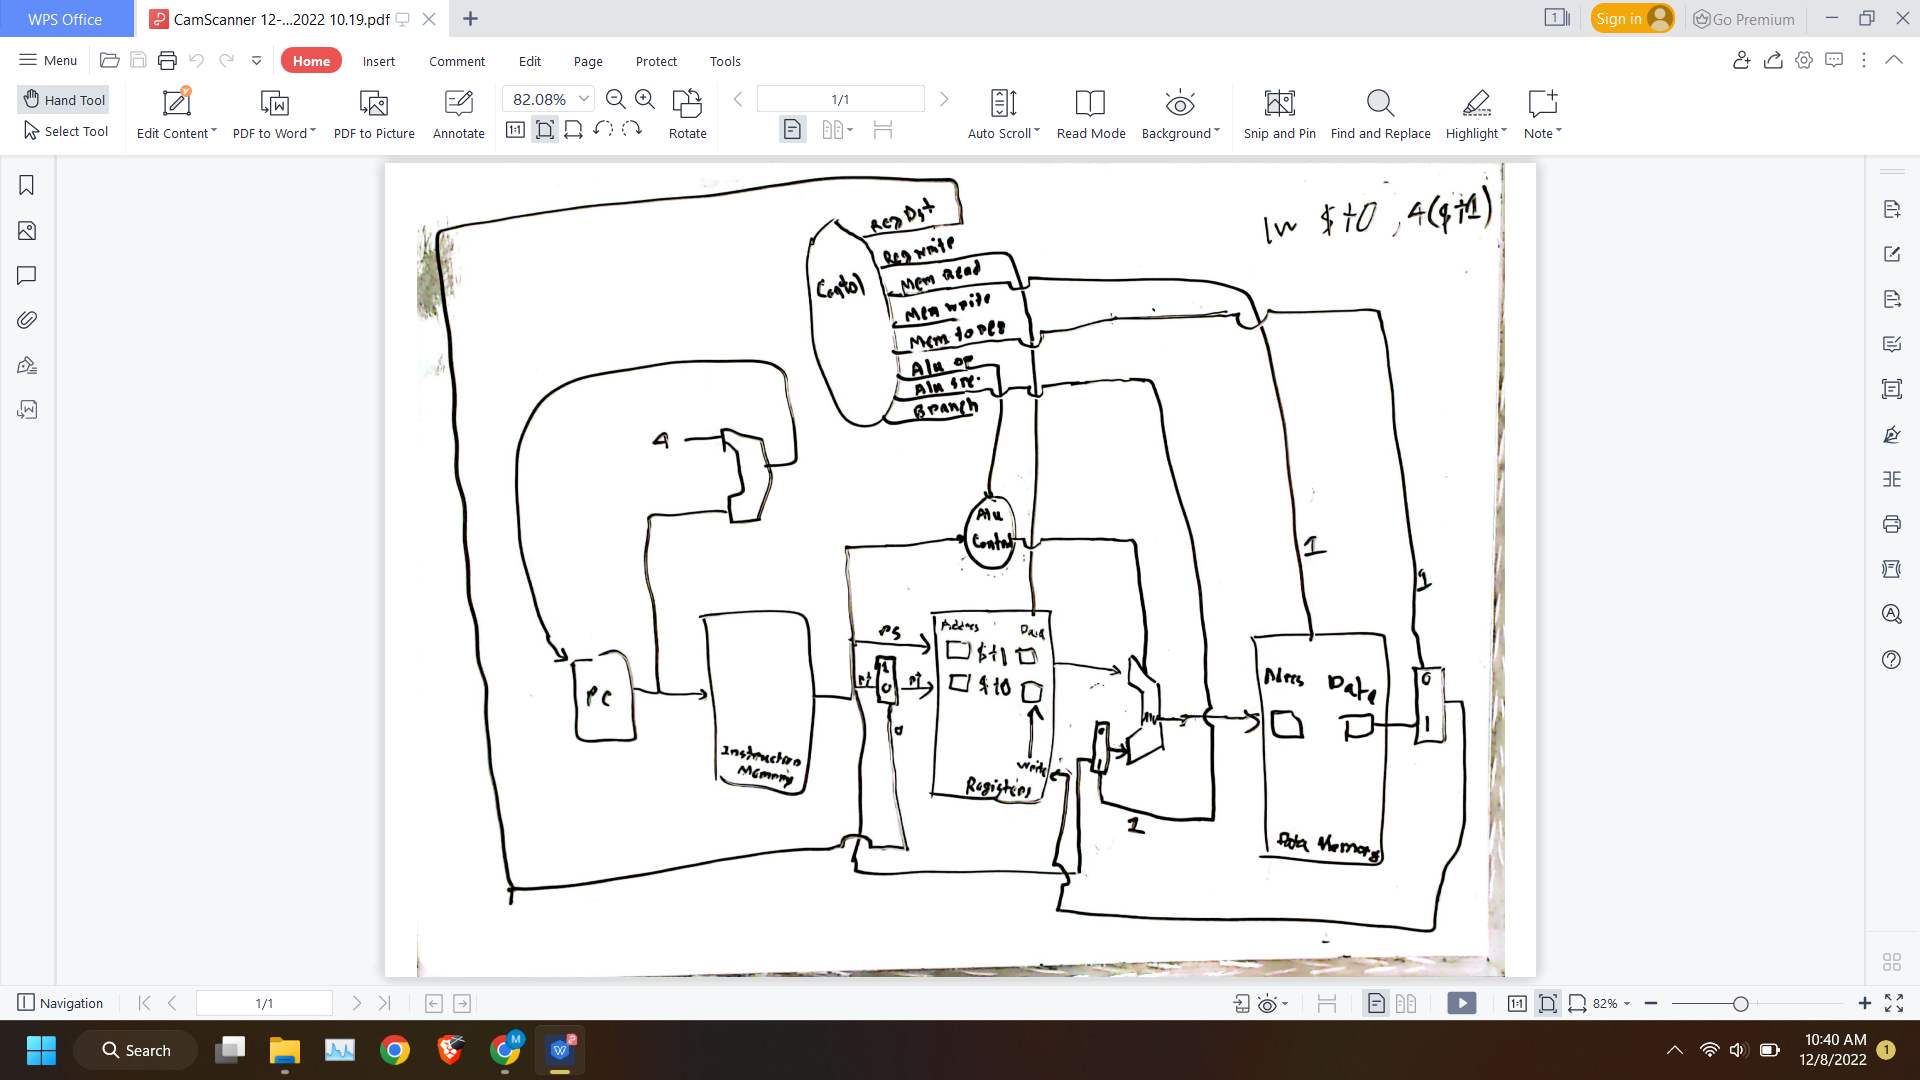 WPS Office
CamScanner 12-...2022 10.19.pdf
1
Sign in
Go Premium
Menu
Home
Insert
Comment
Edit
Page
Protect
Tools
Hand Tool
Select Tool
Edit Content
PDF to Word
PDF to Picture
Annotate
82.08%
1:1
Rotate
1/1
Auto Scroll
Read Mode
Background
Snip and Pin
Find and Replace
Highlight
Note
lw $t0, 4($t1)
Reg Dst
Reg write
Mem Read
Mem write
Mem to reg
Alu op
Alu src.
Branch
Control
4
Alu
Control
1
1
PC
Instruction
Memory
rs
rt
1
0
rt
0
Address
Data
$t1
$t0
write
Registers
0
1
Alu
1
Adres
Data
Data Memory
0
1
Navigation
1/1
1:1
82%
Search
M
10:40 AM
12/8/2022
1